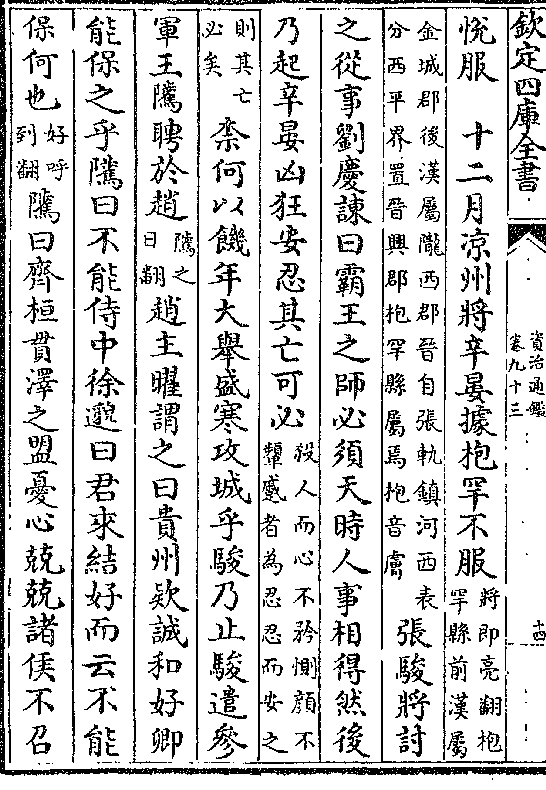 欽定四庫全書
資治通鑑
卷九十三
十四
悅服　十二月涼州將辛晏據抱罕不服將即亮翻抱罕縣前漢屬
金城郡後漢屬隴西郡晉自張軌鎮河西表分西平界置晉興郡抱罕縣屬焉抱音膚張駿將討
之從事劉慶諫曰霸王之師必須天時人事相得然後
乃起辛晏凶狂安忍其亡可必殺人而心不矜惻顏不顰蹙者為忍忍而安之
則其亡必矣柰何以饑年大舉盛寒攻城乎駿乃止駿遣參
軍王隲聘於趙隲之日翻趙主曜謂之曰貴州欵誠和好卿
能保之乎隲曰不能侍中徐邈曰君來結好而云不能
保何也好呼到翻隲曰齊桓貫澤之盟憂心兢兢諸侯不召